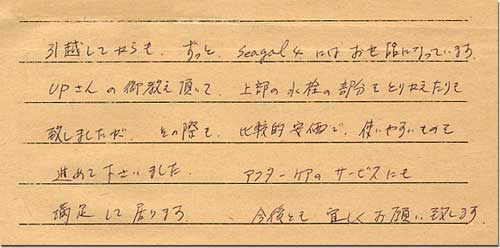 引越してからも、ずっと、Seagal 4 にはお世話になっています。
UPさんの御教え頂いて、上部の水栓の部分もとりかえたりで
致しましたが、その際も、比較的安価で、使いやすいものを
進めて下さいました。 アフターケアのサービスにも
満足して居ります。 今後とも宜しくお願い致します。